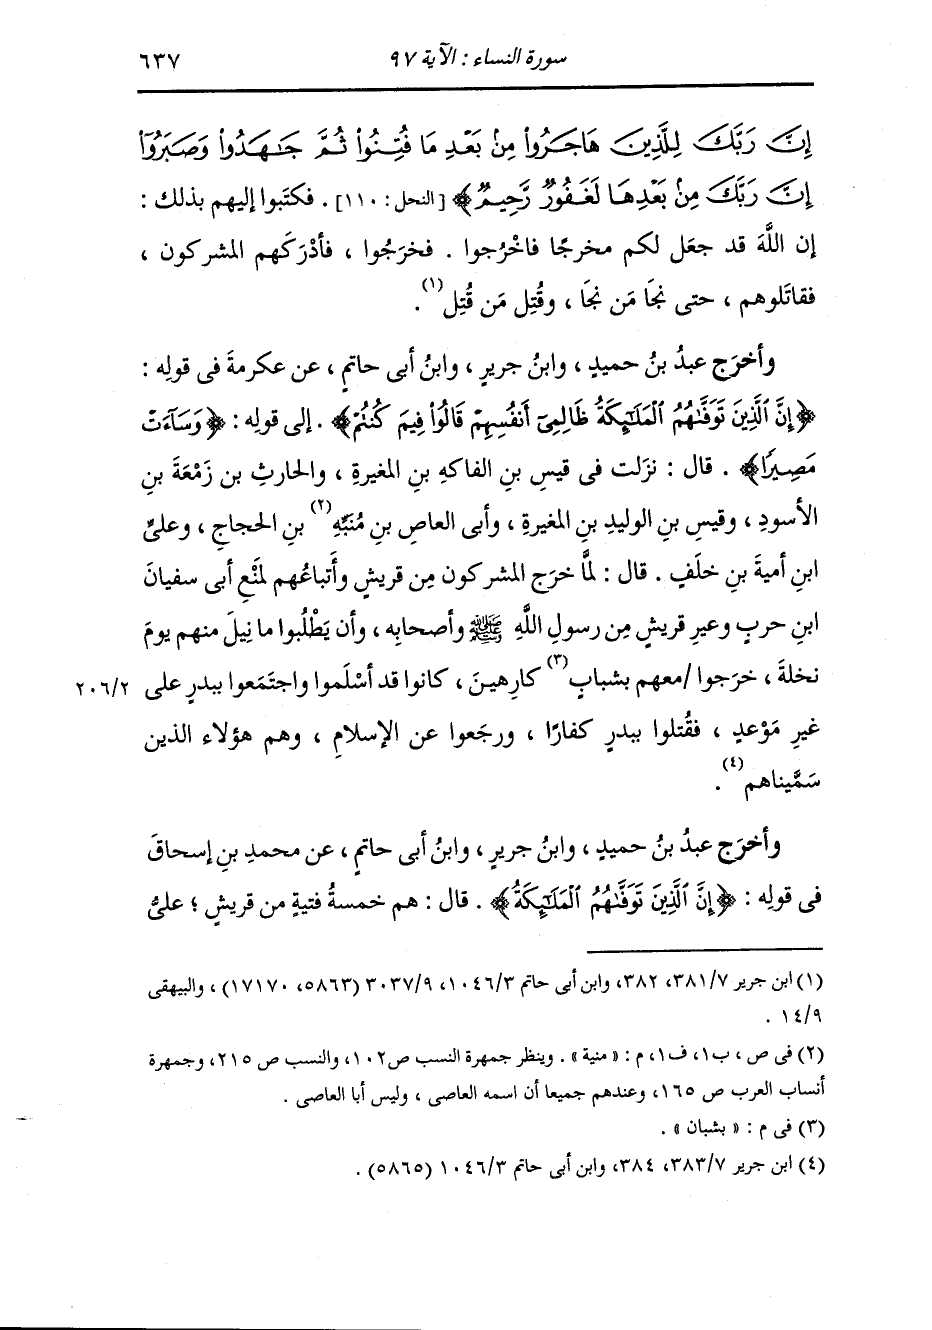 سورة النساء : الآية ٩٧
٦٣٧
إِنَّ رَبَّكَ لِلَّذِينَ هَاجَرُوا۟ مِنۢ بَعْدِ مَا فُتِنُوا۟ ثُمَّ جَـٰهَدُوا۟ وَصَبَرُوٓا۟
إِنَّ رَبَّكَ مِنۢ بَعْدِهَا لَغَفُورٌ رَّحِيمٌ﴾ [النحل : ١١٠] . فكتَبوا إليهم بذلك :
إن اللَّهَ قد جعَل لكم مخرجًا فاخْرُجوا . فخرَجُوا ، فأدْرَكَهم المشركون ،
فقاتَلوهم ، حتى نجَا مَن نجَا ، وقُتِل مَن قُتِل(١) .
وأخرَج عبدُ بنُ حميدٍ ، وابنُ جريرٍ ، وابنُ أبى حاتمٍ ، عن عكرمةَ فى قولِه :
﴿إِنَّ ٱلَّذِينَ تَوَفَّىٰهُمُ ٱلْمَلَـٰٓئِكَةُ ظَالِمِىٓ أَنفُسِهِمْ قَالُوا۟ فِيمَ كُنتُمْ﴾ . إلى قولِه : ﴿وَسَآءَتْ
مَصِيرًا﴾ . قال : نزَلت فى قيسِ بنِ الفاكهِ بنِ المغيرةِ ، والحارثِ بن زَمْعَةَ بنِ
الأسودِ ، وقيسِ بنِ الوليدِ بنِ المغيرةِ ، وأبى العاصِ بنِ مُنَبِّهِ(٢) بنِ الحجاجِ ، وعلىِّ
ابنِ أميةَ بنِ خلَفٍ . قال : لمَّا خرَج المشركون مِن قريشٍ وأتباعُهم لمنْعِ أبى سفيانَ
ابنِ حربٍ وعيرِ قريشٍ مِن رسولِ اللَّهِ ﷺ وأصحابِه ، وأن يَطْلُبوا ما نِيلَ منهم يومَ
نخلةَ ، خرَجوا /معهم بشبابٍ(٣) كارِهينَ ، كانوا قد أسْلَموا واجتَمَعوا ببدرٍ على
٢٠٦/٢
غيرِ مَوْعدٍ ، فقُتلوا ببدرٍ كفارًا ، ورجَعوا عن الإسلامِ ، وهم هؤلاء الذين
سَمَّيناهم(٤) .
وأخرَج عبدُ بنُ حميدٍ ، وابنُ جريرٍ ، وابنُ أبى حاتمٍ ، عن محمدِ بنِ إسحاقَ
فى قولِه : ﴿إِنَّ ٱلَّذِينَ تَوَفَّىٰهُمُ ٱلْمَلَـٰٓئِكَةُ﴾ . قال : هم خمسةُ فتيةٍ من قريشٍ ؛ علىُّ
(١) ابن جرير ٣٨١/٧، ٣٨٢، وابن أبى حاتم ١٠٤٦/٣، ٣٠٣٧/٩ (٥٨٦٣، ١٧١٧٠) ، والبيهقى
١٤/٩ .
(٢) فى ص ، ب١، ف١، م : « منية » . وينظر جمهرة النسب ص١٠٢، والنسب ص ٢١٥، وجمهرة
أنساب العرب ص ١٦٥، وعندهم جميعا أن اسمه العاصى ، وليس أبا العاصى .
(٣) فى م : « بشبان » .
(٤) ابن جرير ٣٨٣/٧، ٣٨٤، وابن أبى حاتم ١٠٤٦/٣ (٥٨٦٥) .